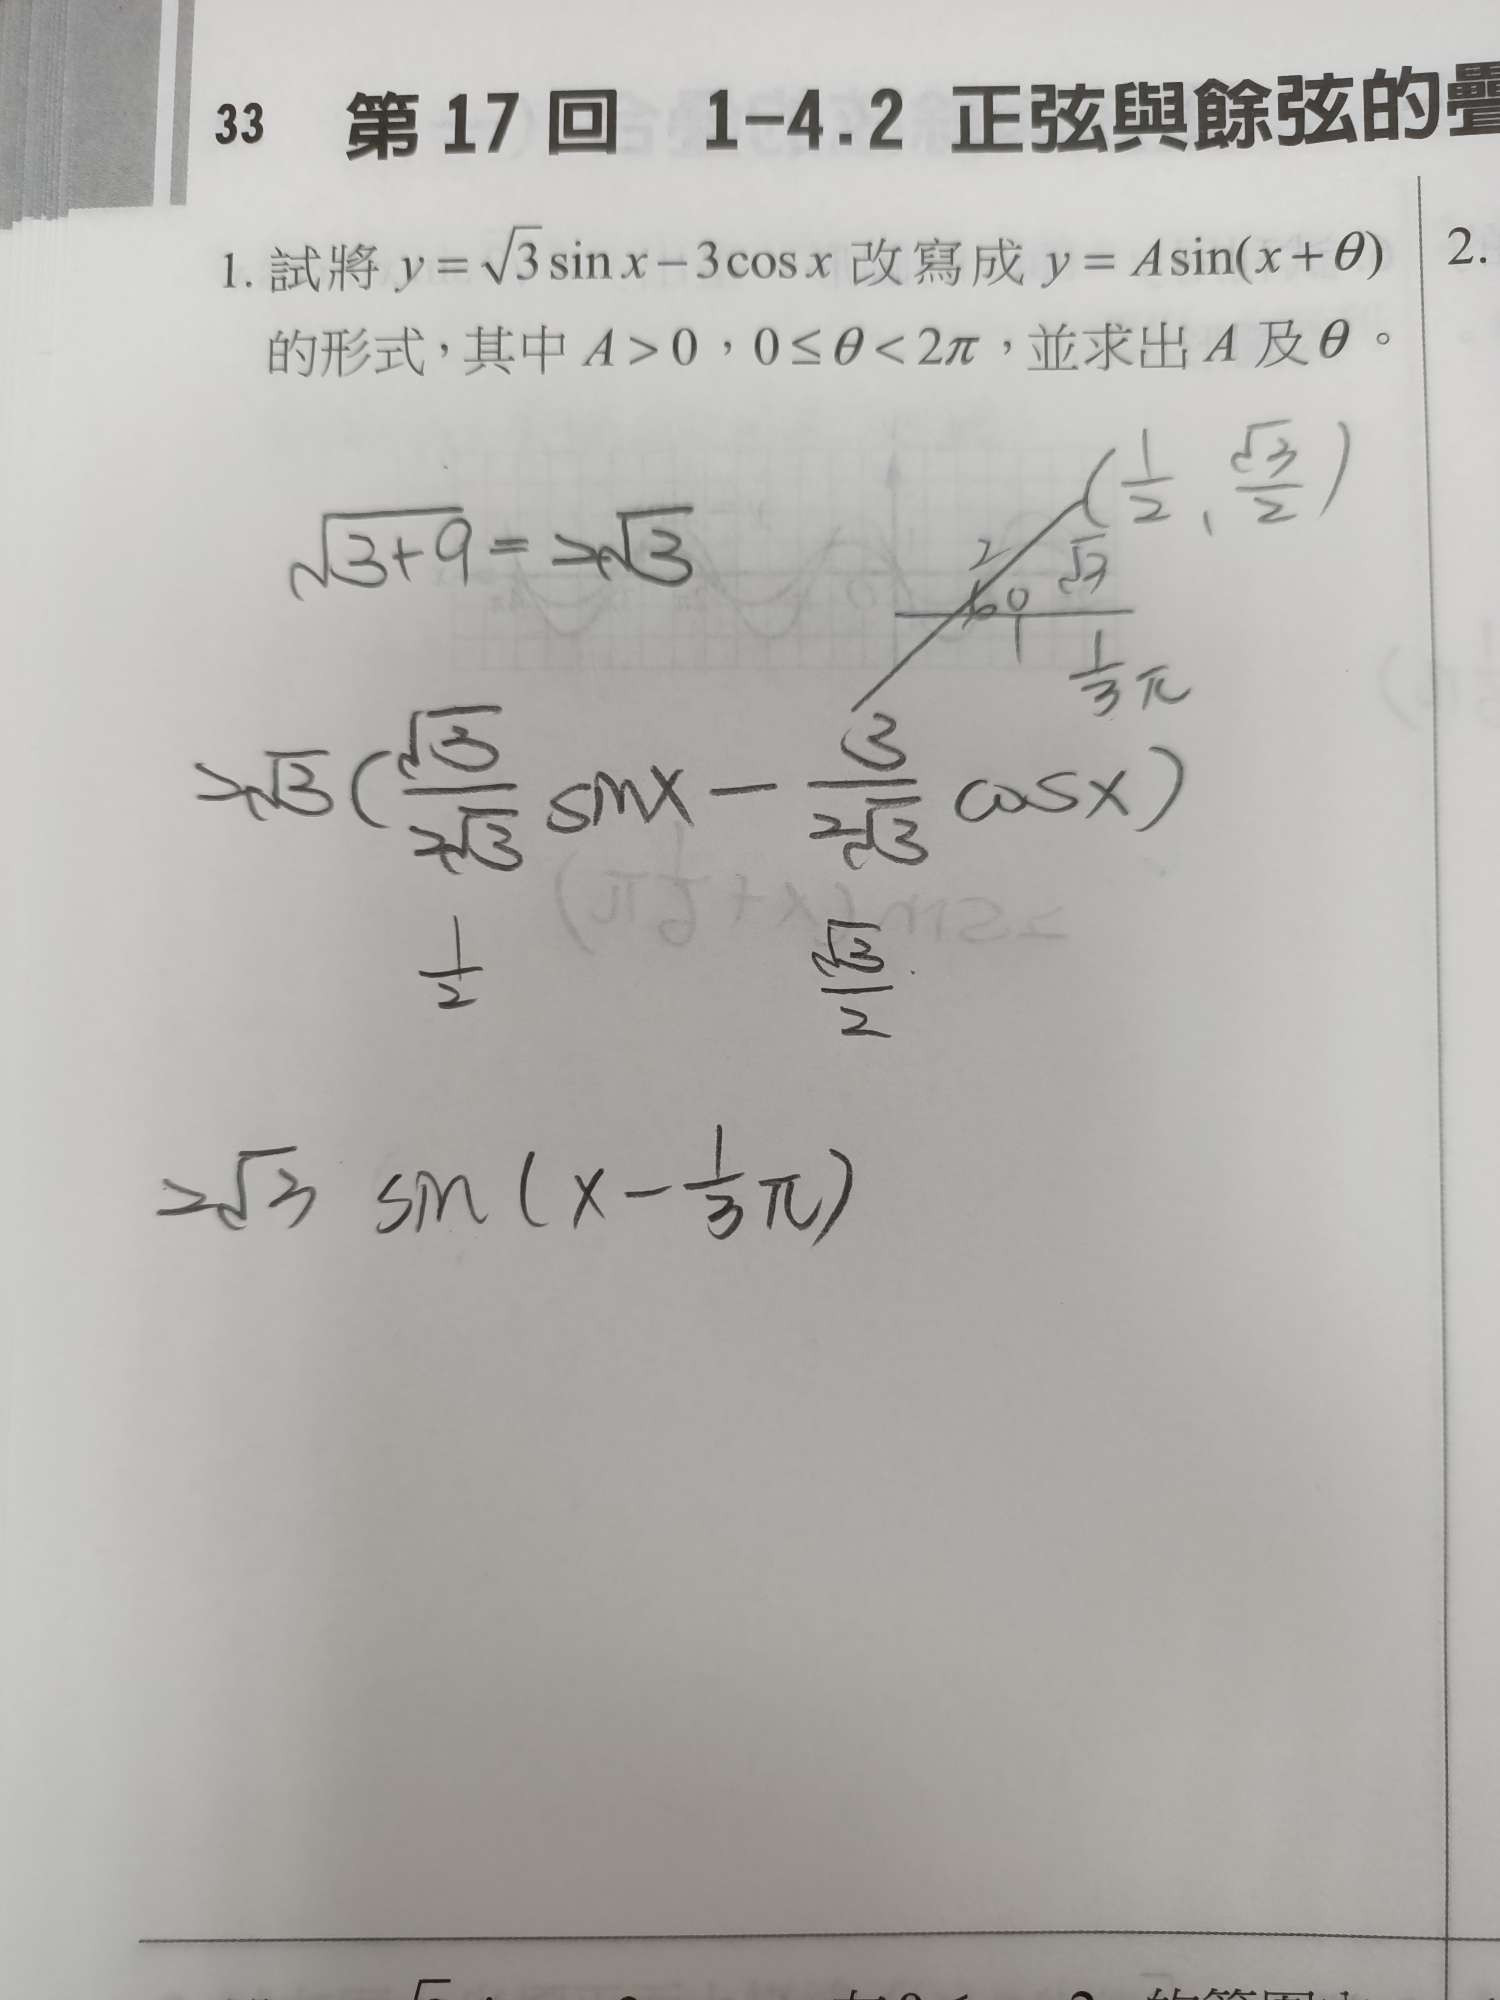 33 第17回 1-4.2 正弦與餘弦的疊
1. 試將 y=√3 sin x−3cos x 改寫成 y= A sin(x+θ)
的形式，其中 A>0，0≤θ<2π，並求出 A 及θ。
2.
(1/2, √3/2)
√(3+9) = 2√3
2 √3
60
1
1/3 π
2√3 ( √3/2√3 sinx − 3/2√3 cosx )
1/2 √3/2
2√3 sin ( x − 1/3 π )